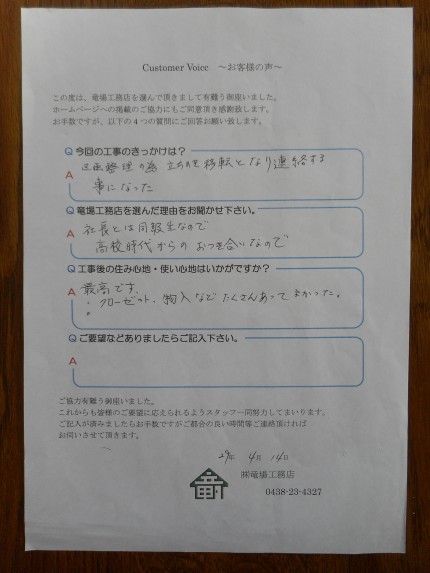 Customer Voice　～お客様の声～
この度は、竜場工務店を選んで頂きまして有難う御座いました。
ホームページへの掲載のご協力にもご同意頂き感謝致します。
お手数ですが、以下の４つの質問にご回答お願い致します。
Q 今回の工事のきっかけは？
A 区画整理の為 立ちのき移転となり連絡する
事になった
Q 竜場工務店を選んだ理由をお聞かせ下さい。
A 社長とは同級生なので
高校時代からのおつき合いなので
Q 工事後の住み心地・使い心地はいかがですか？
A 最高です。
・クローゼット、物入などたくさんあってよかった。
Q ご要望などありましたらご記入下さい。
A
ご協力有難う御座いました。
これからも皆様のご要望に応えられるようスタッフ一同努力してまいります。
ご記入が済みましたらお手数ですがご都合の良い時間等ご連絡頂ければ
お伺いさせて頂きます。
29年 4月 14日
㈱竜場工務店
0438-23-4327